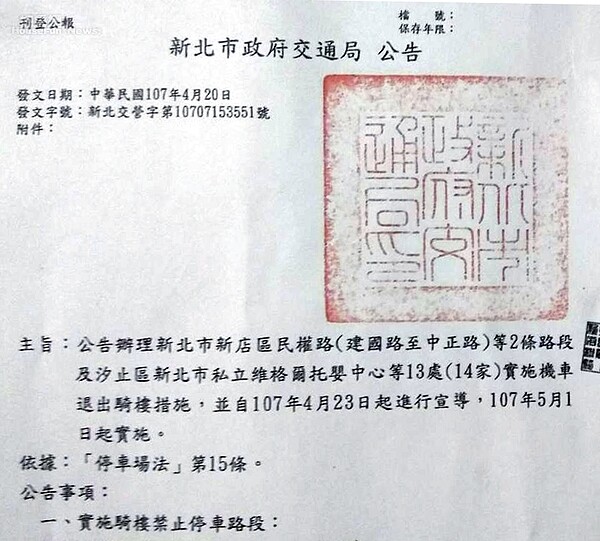 刊登公報
檔　　號：
保存年限：
新北市政府交通局 公告
發文日期：中華民國107年4月20日
發文字號：新北交營字第10707153551號
附件：
新北市
政府交
通局印
主旨：公告辦理新北市新店區民權路(建國路至中正路)等2條路段
及汐止區新北市私立維格爾托嬰中心等13處(14家)實施機車
退出騎樓措施，並自107年4月23日起進行宣導，107年5月1
日起實施。
依據：「停車場法」第15條。
公告事項：
一、實施騎樓禁止停車路段：